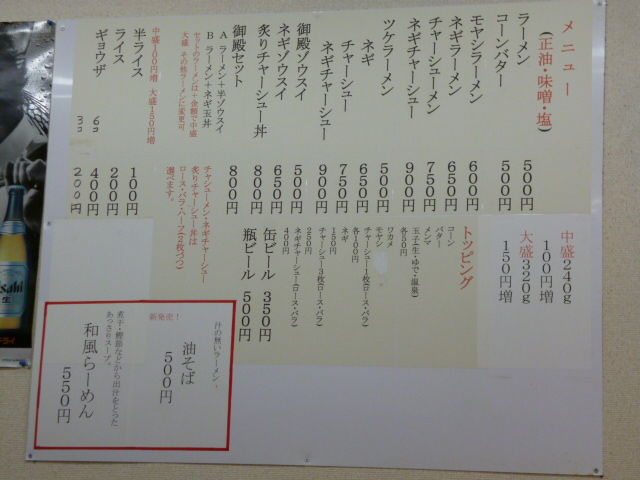 メニュー
(正油・味噌・塩)
ラーメン 500円
コーンバター 500円
モヤシラーメン 600円
ネギラーメン 650円
チャーシューメン 750円
ネギチャーシューメン 900円
ツケラーメン 500円
ネギ 650円
チャーシュー 750円
ネギチャーシュー 900円
御殿ゾウスイ 500円
ネギゾウスイ 650円
炙りチャーシュー丼 800円
御殿セット 800円
A ラーメン+半ゾウスイ
B ラーメン+ネギ玉丼
セットのラーメンは+金額で中盛
大盛、その他ラーメンに変更可
中盛100円増 大盛150円増
半ライス 100円
ライス 200円
ギョウザ 6コ 400円
3コ 200円
中盛240g
100円増
大盛320g
150円増
トッピング
コーン
バター
メンマ
玉子(生・ゆで・温泉)
各50円
ワカメ
モヤシ
各100円
チャーシュー1枚(ロース・バラ)
150円
ネギ
250円
チャーシュー3枚(ロース・バラ)
400円
ネギチャーシュー(ロース・バラ)
缶ビール 350円
瓶ビール 500円
チャシューメン・ネギチャーシュー
炙りチャーシュー丼は
ロース・バラ・ハーフ(2枚づつ)
選べます。
汁の無いラーメン、
新発売!
油そば
500円
煮干・鰹節などから出汁をとった
あっさりスープ。
和風らーめん
550円
Asahi
生